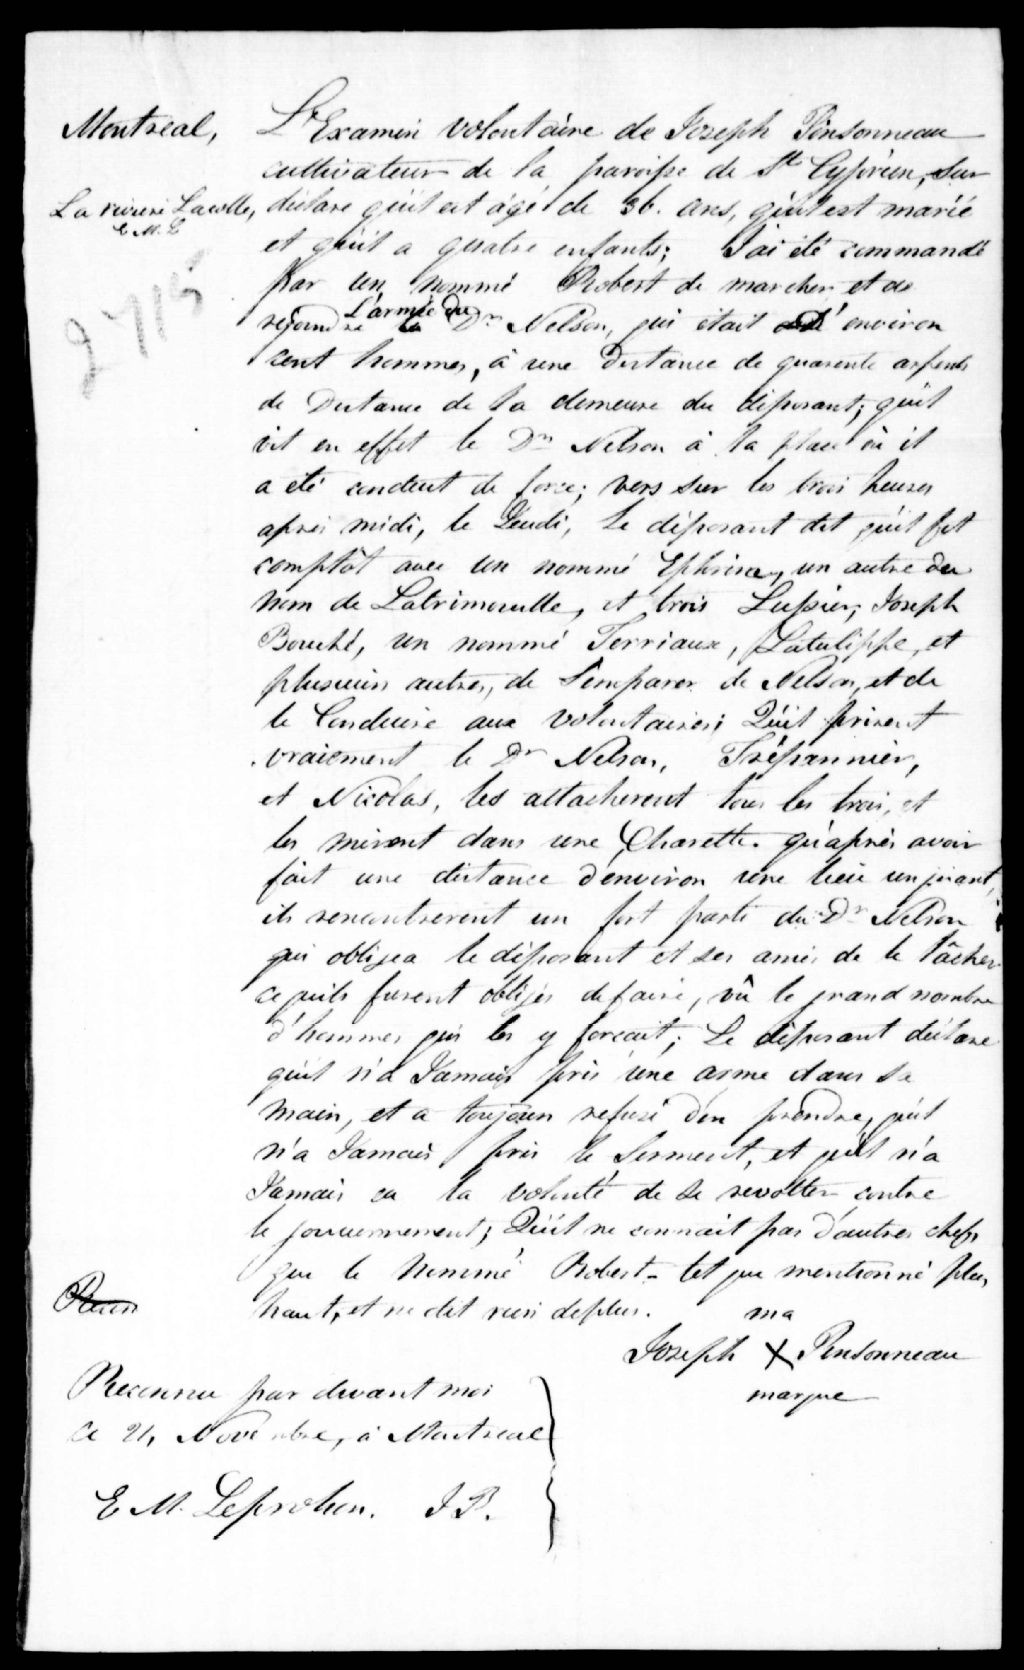 Montreal, L'Examin volontaire de Joseph Pinsonneau
cultivateur de la paroisse de St Cyprien, sur
La riviere Lacolle, declare qu'il est agé de 36. ans, qu'il est marié
E M. L
et qu'il a quatre enfants; J'ai été commandé
par un nommé Robert de marcher et de
2715
L'armée du
rejoindre le Dr Nelson, qui était environ
cent hommes, à une distance de quarente arpents
de Distance de la demeure du déposant; qu'il
vit en effet le Dr Nelson à la place où il
a été conduit de force; vers sur les trois heures
après midi, le Jeudi, Le déposant dit qu'il fit
complôt avec un nommé Ephrim, un autre du
nom de Latrimouille, et trois Lussier, Joseph
Bouché, un nommé Terriaux, Latulippe, et
plusieurs autres, de s'emparer de Nelson, et de
le Conduire aux volontaires; Qu'il prirent
vraiement le Dr Nelson, Trépannier,
et Nicolas, les attacherent tous les trois, et
les mirent dans une Charette. qu'après avoir
fait une distance d'environ une lieue un quart,
ils rencontrerent un fort parti du Dr Nelson
qui obligea le déposant et ses amis de le lâcher
ce qu'ils furent obligés de faire, vû le grand nombre
d'hommes qui les y forcait; Le déposant déclare
qu'il n'a Jamais pris une arme dans sa
main, et a toujours refusé d'en prendre, qu'il
n'a Jamais pris le Serment, et qu'il n'a
Jamais eu la volonté de se revolter contre
le gouvernement; Qu'il ne connait pas d'autres chefs
que le nommé Robert tel que mentionné plus
haut, et ne dit rien deplus.
ma
Joseph X Pinsonneau
marque
Reconnu par devant moi
ce 21, Novembre, à Montreal
E M. Leprohon. J P.